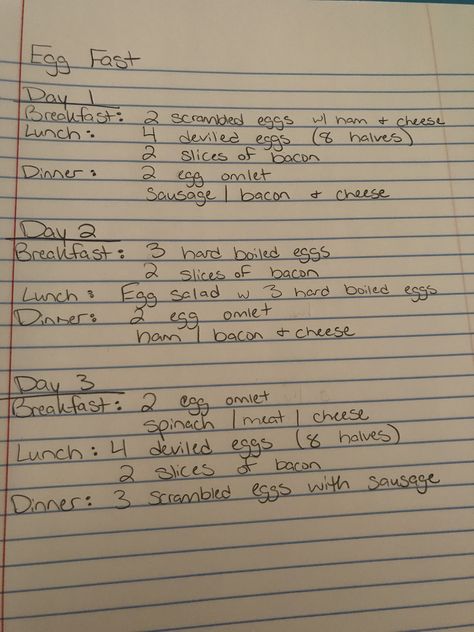 Egg Fast
Day 1
Breakfast: 2 scrambled eggs w/ ham + cheese
Lunch: 4 deviled eggs (8 halves)
2 slices of bacon
Dinner: 2 egg omlet
sausage / bacon + cheese
Day 2
Breakfast: 3 hard boiled eggs
2 slices of bacon
Lunch: Egg salad w 3 hard boiled eggs
Dinner: 2 egg omlet
ham / bacon + cheese
Day 3
Breakfast: 2 egg omlet
spinach / meat / cheese
Lunch: 4 deviled eggs (8 halves)
2 slices of bacon
Dinner: 3 scrambled eggs with sausage